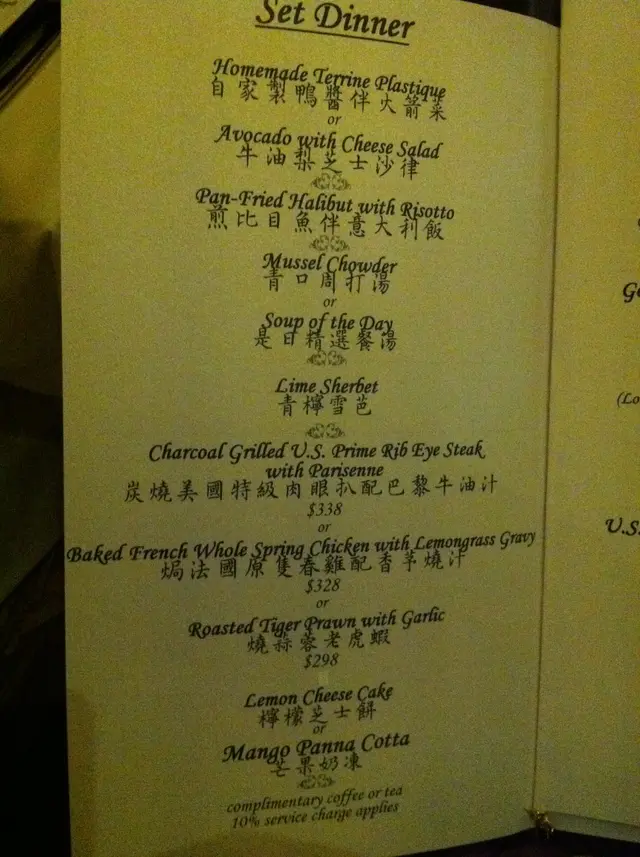 Set Dinner
Homemade Terrine Plastique
自家製鴨醬伴火箭菜
or
Avocado with Cheese Salad
牛油梨芝士沙律
Pan-Fried Halibut with Risotto
煎比目魚伴意大利飯
Mussel Chowder
青口周打湯
or
Soup of the Day
是日精選餐湯
Lime Sherbet
青檸雪芭
Charcoal Grilled U.S. Prime Rib Eye Steak
with Parisenne
炭燒美國特級肉眼扒配巴黎牛油汁
$338
or
Baked French Whole Spring Chicken with Lemongrass Gravy
焗法國原隻春雞配香茅燒汁
$328
or
Roasted Tiger Prawn with Garlic
燒蒜蓉老虎蝦
$298
Lemon Cheese Cake
檸檬芝士餅
or
Mango Panna Cotta
芒果奶凍
complimentary coffee or tea
10% service charge applies
(Lo
U.S.